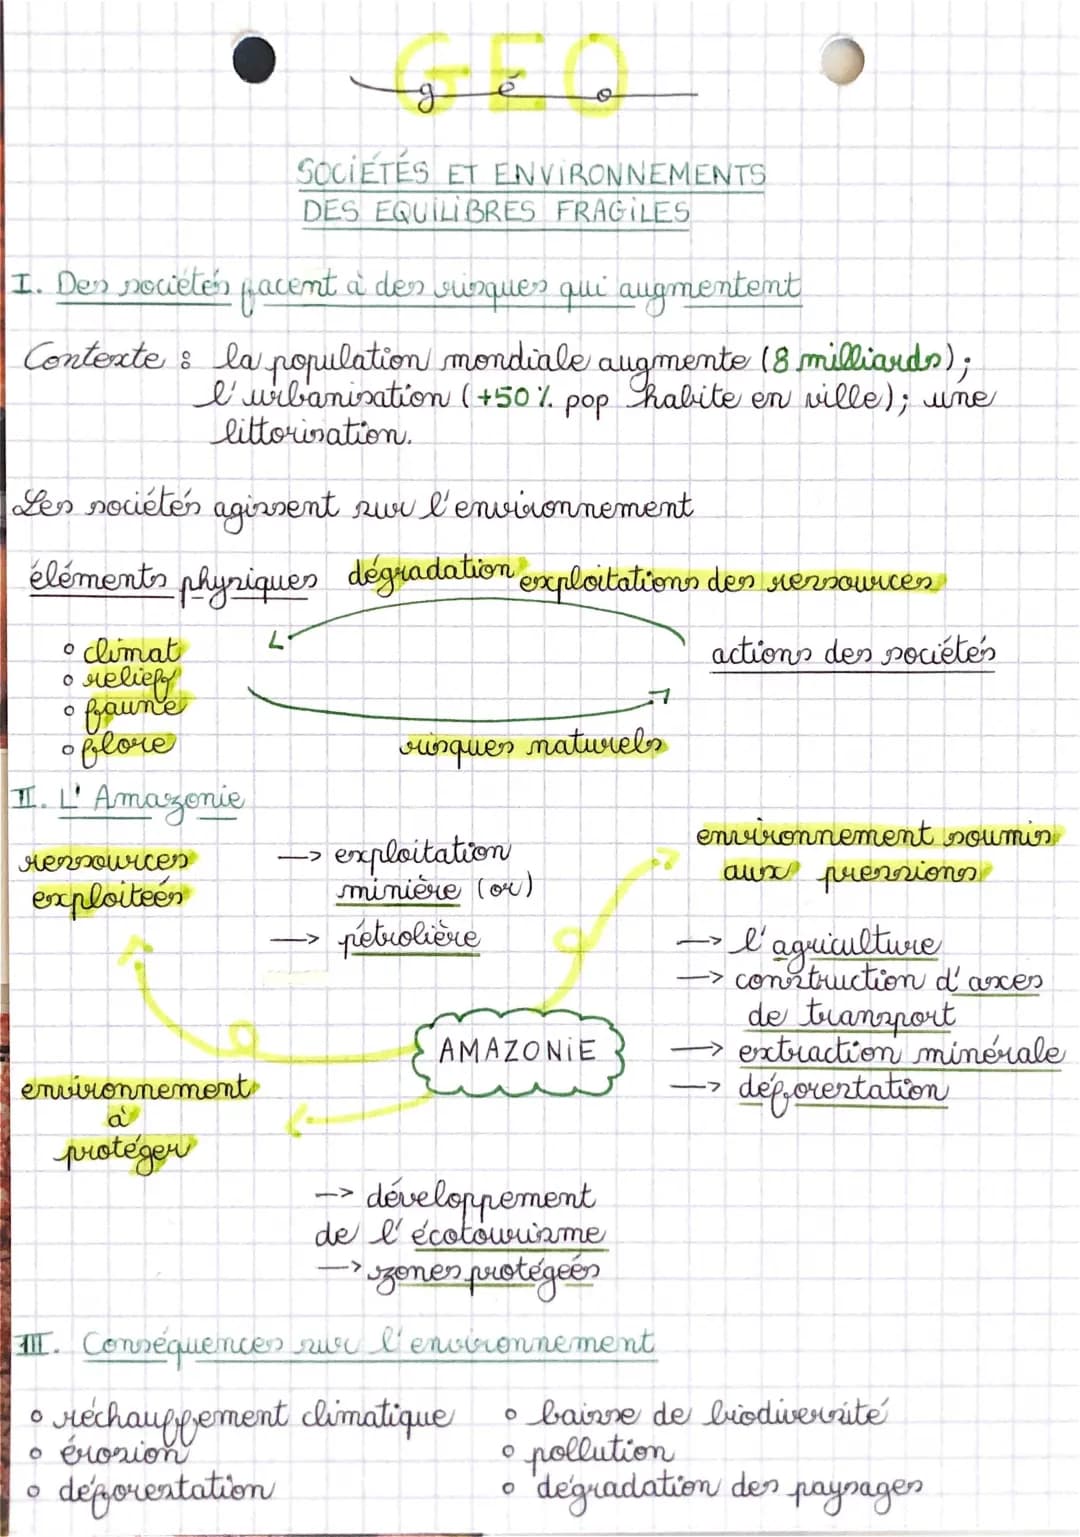 GEO
géo
SOCIÉTÉS ET ENVIRONNEMENTS
DES EQUILIBRES FRAGILES
I. Des sociétés facent à des risques qui augmentent
Contexte : la population mondiale augmente (8 milliards);
l'urbanisation (+50% pop habite en ville); une
littorisation.
Les sociétés agissent sur l'environnement
éléments physiques
dégradation exploitations des ressources
actions des sociétés
° climat
° relief
° faune
° flore
risques naturels
II. L'Amazonie
ressources
exploitées
—> exploitation
minière (or)
—> pétrolière
environnement soumis
aux pressions
—> l'agriculture
—> construction d'axes
de transport
—> extraction minérale
—> déforestation
AMAZONIE
environnement
à
protéger
—> développement
de l'écotourisme
—> zones protégées
III. Conséquences sur l'environnement
° réchauffement climatique
° érosion
° déforestation
° baisse de biodiversité
° pollution
° dégradation des paysages